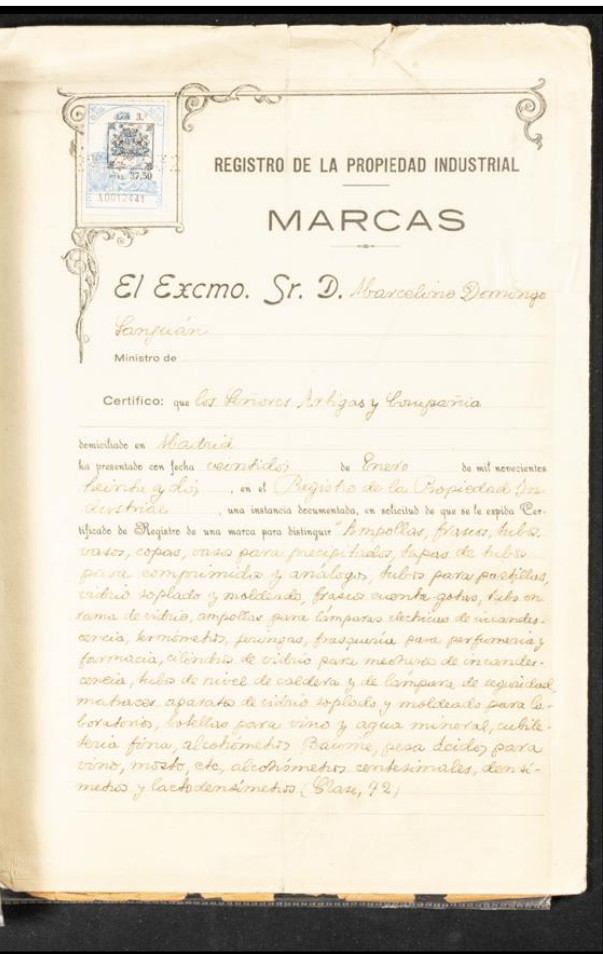 3.ª
PTAS. 37,50
A0012441
REGISTRO DE LA PROPIEDAD INDUSTRIAL
MARCAS
El Excmo. Sr. D. Marcelino Domingo
Sanjuán
Ministro de
Certifico: que los Señores Artigas y Compañia
domiciliado en Madrid
ha presentado con fecha veintidós de Enero de mil novecientos
treinta y dos, en el Registro de la Propiedad In-
dustrial, una instancia documentada, en solicitud de que se le expida Cer-
tificado de Registro de una marca para distinguir "Ampollas, frascos, tubos,
vasos, copas, vasos para precipitados, tapas de tubos
para comprimidos y análogos, tubos para pastillas,
vidrio soplado y moldeado, frascos cuenta-gotas, tubo en
rama de vidrio, ampollas para lámparas electricas de incandes-
cencia, termómetros, jeringas, frasquería para perfumeria y
farmacia, cilindros de vidrio para mecheros de incandes-
cencia, tubos de nivel de caldera y de lámpara de seguridad,
matraces, aparatos de vidrio soplado y moldeado para la-
boratorios, botellas para vino y agua mineral, cubile-
teria fina, alcohómetros Baume, pesa ácidos para
vino, mosto, etc, alcohómetros centesimales, densí-
metros y lactodensímetros (Clase, 92)